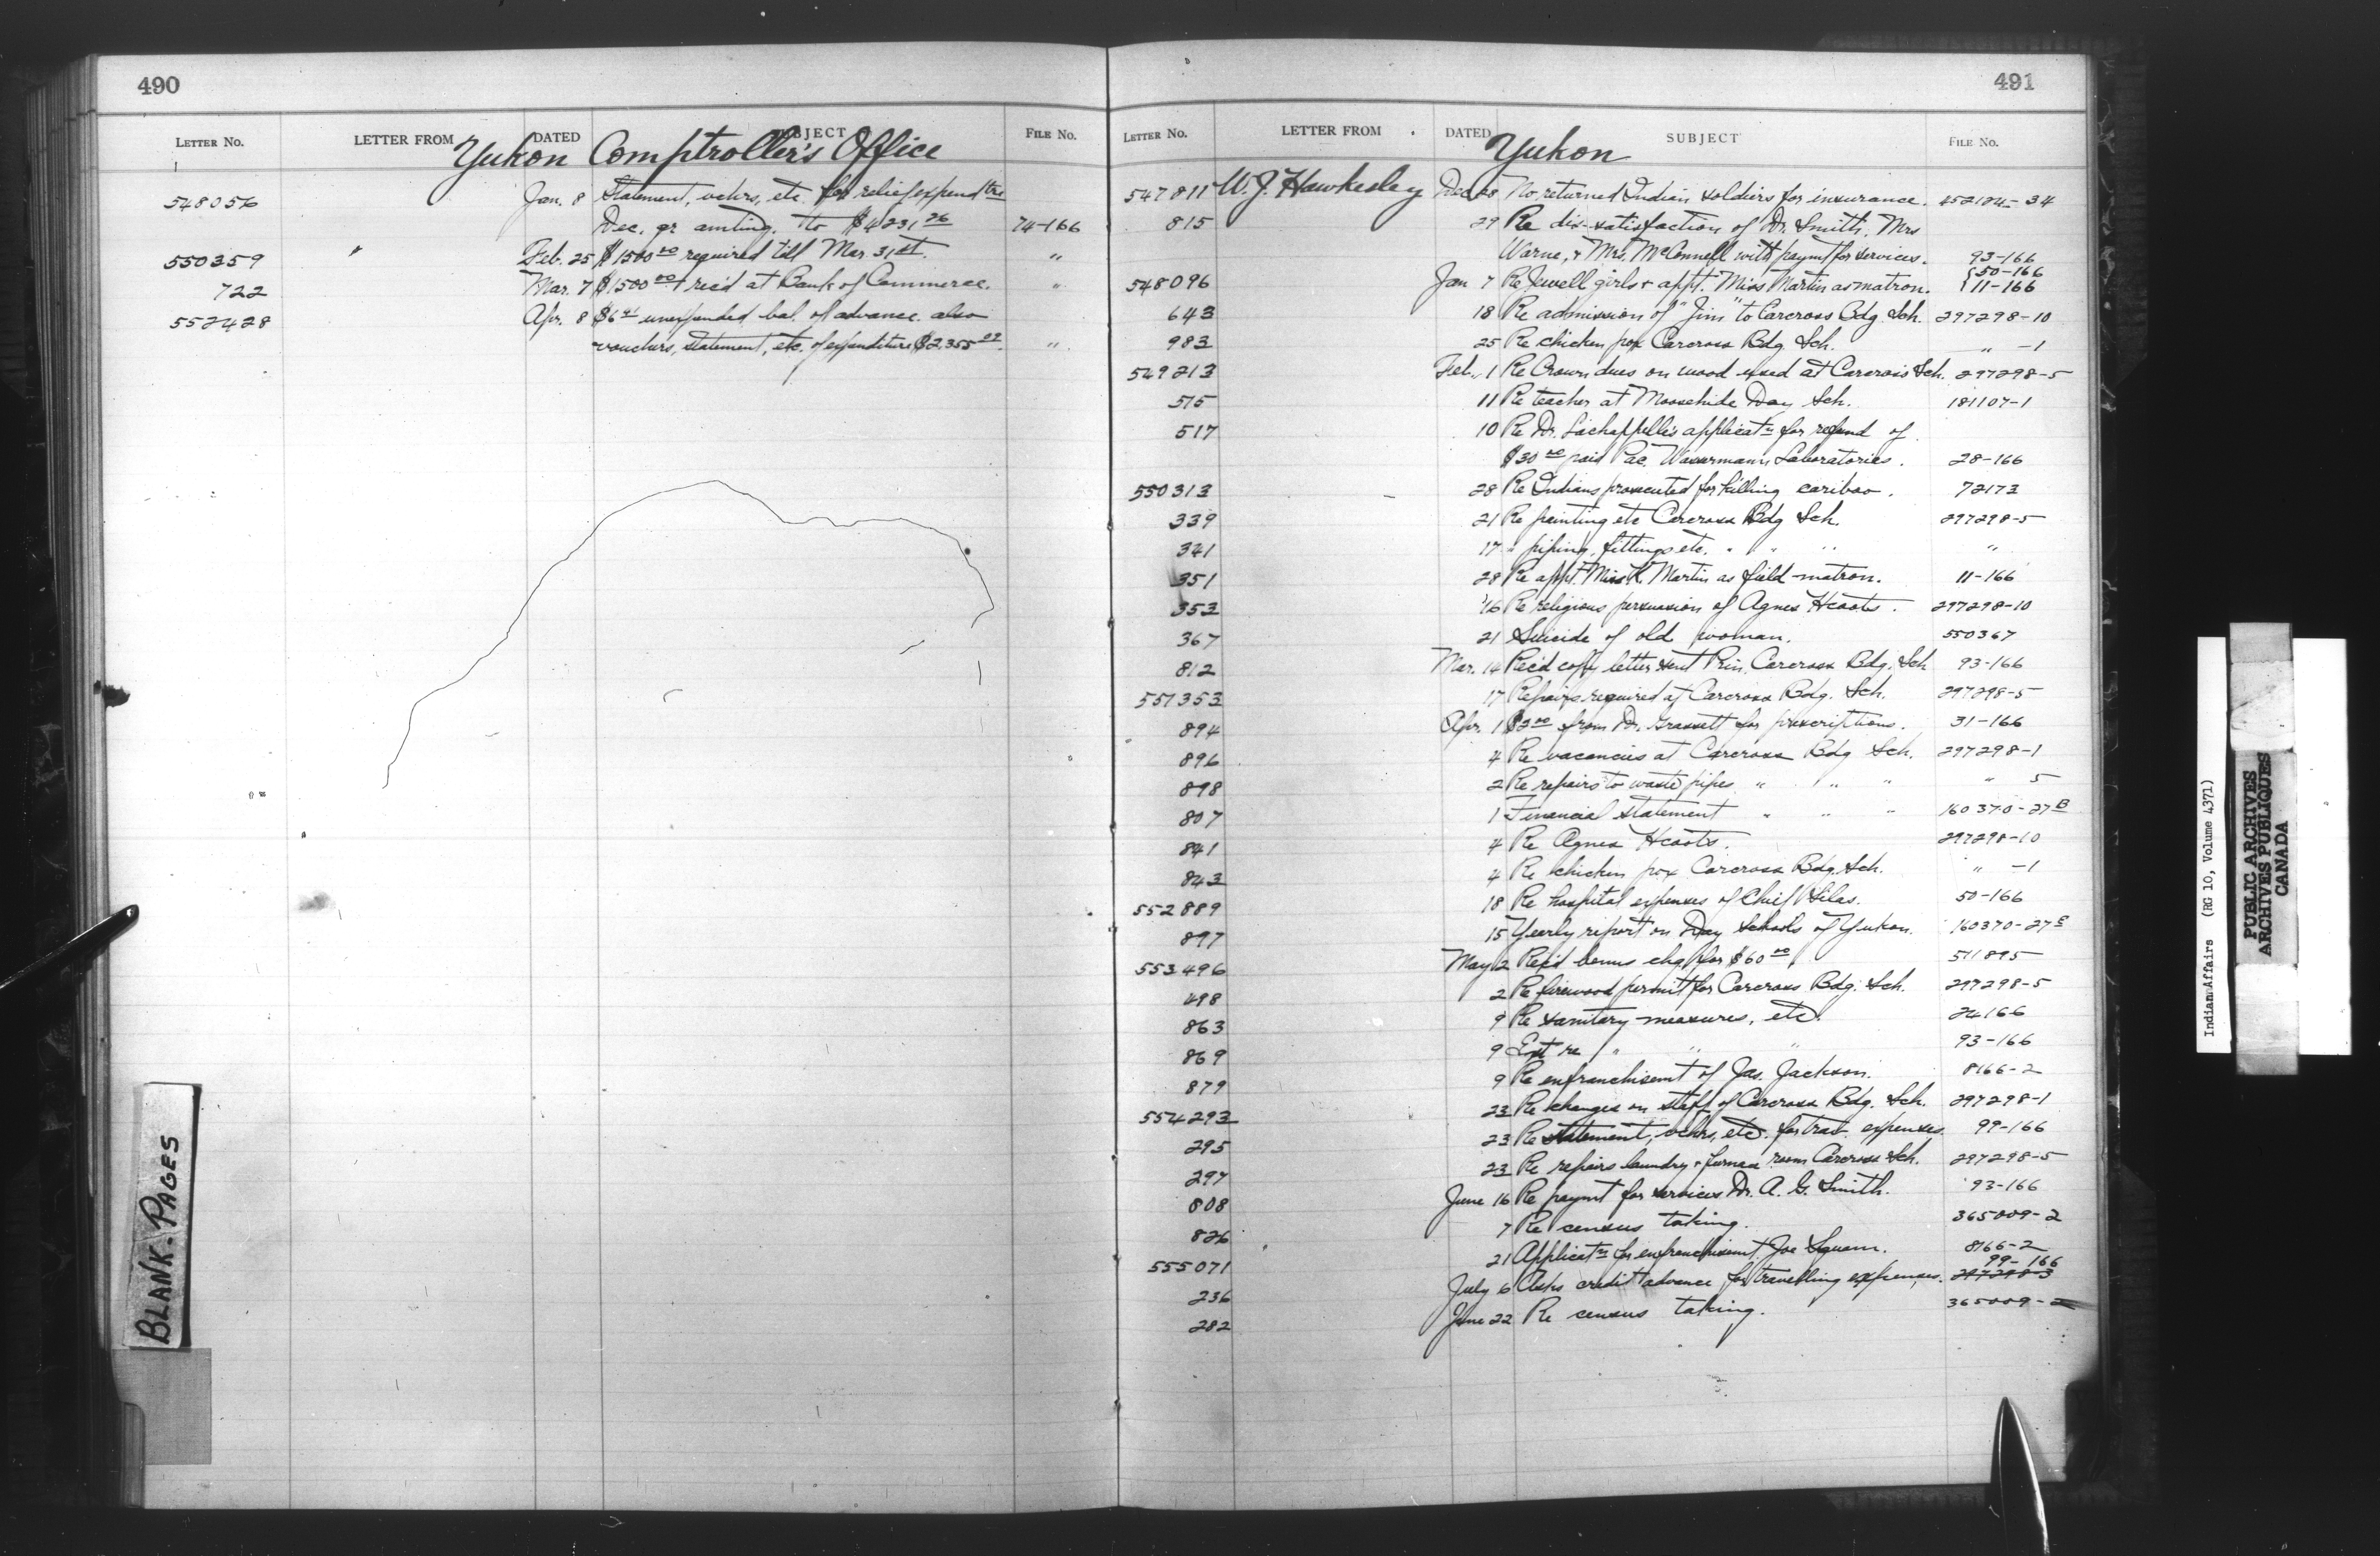 490
LETTER NO. LETTER FROM DATED SUBJECT FILE No.
Yukon Comptroller's Office
548056 Jan. 8 Statement, vchrs, etc. for relief expend'tre
Dec. qr amting. to $4231.26 74-166
550359 " Feb. 25 $1500.00 required till Mar. 31st. "
722 Mar. 7 $1500.00 rec'd at Bank of Commerce. "
552428 Apr. 8 $6.41 unexpended bal. of advance. also
vouchers, statement, etc. of expenditure $2,355. "
BLANK-PAGES
491
LETTER No. LETTER FROM DATED SUBJECT FILE No.
Yukon
547811 W. J. Hawkesley Dec 28 No returned Indian soldiers for insurance. 452124-34
815 29 Re dis-satisfaction of Dr. Smith, Mrs
Warne, & Mrs. McConnell with paymt for services. 93-166
548096 Jan 7 Re Jewell girls & appt. Miss Martin as matron. { 50-166
{ 11-166
643 18 Re admission of "Jim" to Carcross Bdg. Sch. 297298-10
983 25 Re chicken pox Carcross Bdg. Sch. " -1
549213 Feb. 1 Re Crown dues on wood used at Carcross Sch. 297298-5
515 11 Re teacher at Moosehide Day Sch. 181107-1
517 10 Re Dr. Lachappelle's applicatn for refund of
$30.00 paid Pac. Wassermann Laboratories. 28-166
550313 28 Re Indians prosecuted for killing cariboo. 72173
339 21 Re painting etc Carcross Bdg Sch. 297298-5
341 17 " piping, fittings etc. " " " "
351 28 Re appt. Miss K. Martin as field-matron. 11-166
353 16 Re religious persuasion of Agnes Hcoats. 297298-10
367 21 Suicide of old woman. 550367
812 Mar. 14 Rec'd copy letter sent Prin. Carcross Bdg. Sch 93-166
551353 17 Repairs required at Carcross Bdg. Sch. 297298-5
894 Apr. 1 $2.00 from Dr. Grassett for prescriptions. 31-166
896 4 Re vacancies at Carcross Bdg Sch. 297298-1
898 2 Re repairs to waste pipes " " " " 5
807 1 Financial Statement " " " 160370-27B
841 4 Re Agnes Hcoats. 297298-10
843 4 Re chicken pox Carcross Bdg. Sch. " -1
552889 18 Re hospital expenses of Chief Silas. 50-166
897 15 Yearly report on Day Schools of Yukon. 160370-27
553496 May 12 Rec'd bonus chq for $60.00. 511895
498 2 Re firewood permit for Carcross Bdg. Sch. 297298-5
863 9 Re sanitary measures, etc. 24166
869 9 Ext re " " " 93-166
879 9 Re enfranchisemt of Jas. Jackson. 8166-2
554293 23 Re changes on staff of Carcross Bdg. Sch. 297298-1
295 23 Re statement, vchrs, etc. for trav. expenses. 99-166
297 23 Re repairs laundry & furnace room Carcross Sch. 297298-5
808 June 16 Re paymt for services Dr. A. G. Smith. 93-166
826 7 Re census taking. 365009-2
555071 21 Applicatn for enfranchisemt. Joe Squam. 8166-2
99-166
236 July 6 Asks credit advance for travelling expenses. 297298-3
282 June 22 Re census taking. 365009-2
Indian Affairs (RG 10, Volume 4371)
PUBLIC ARCHIVES
ARCHIVES PUBLIQUES
CANADA